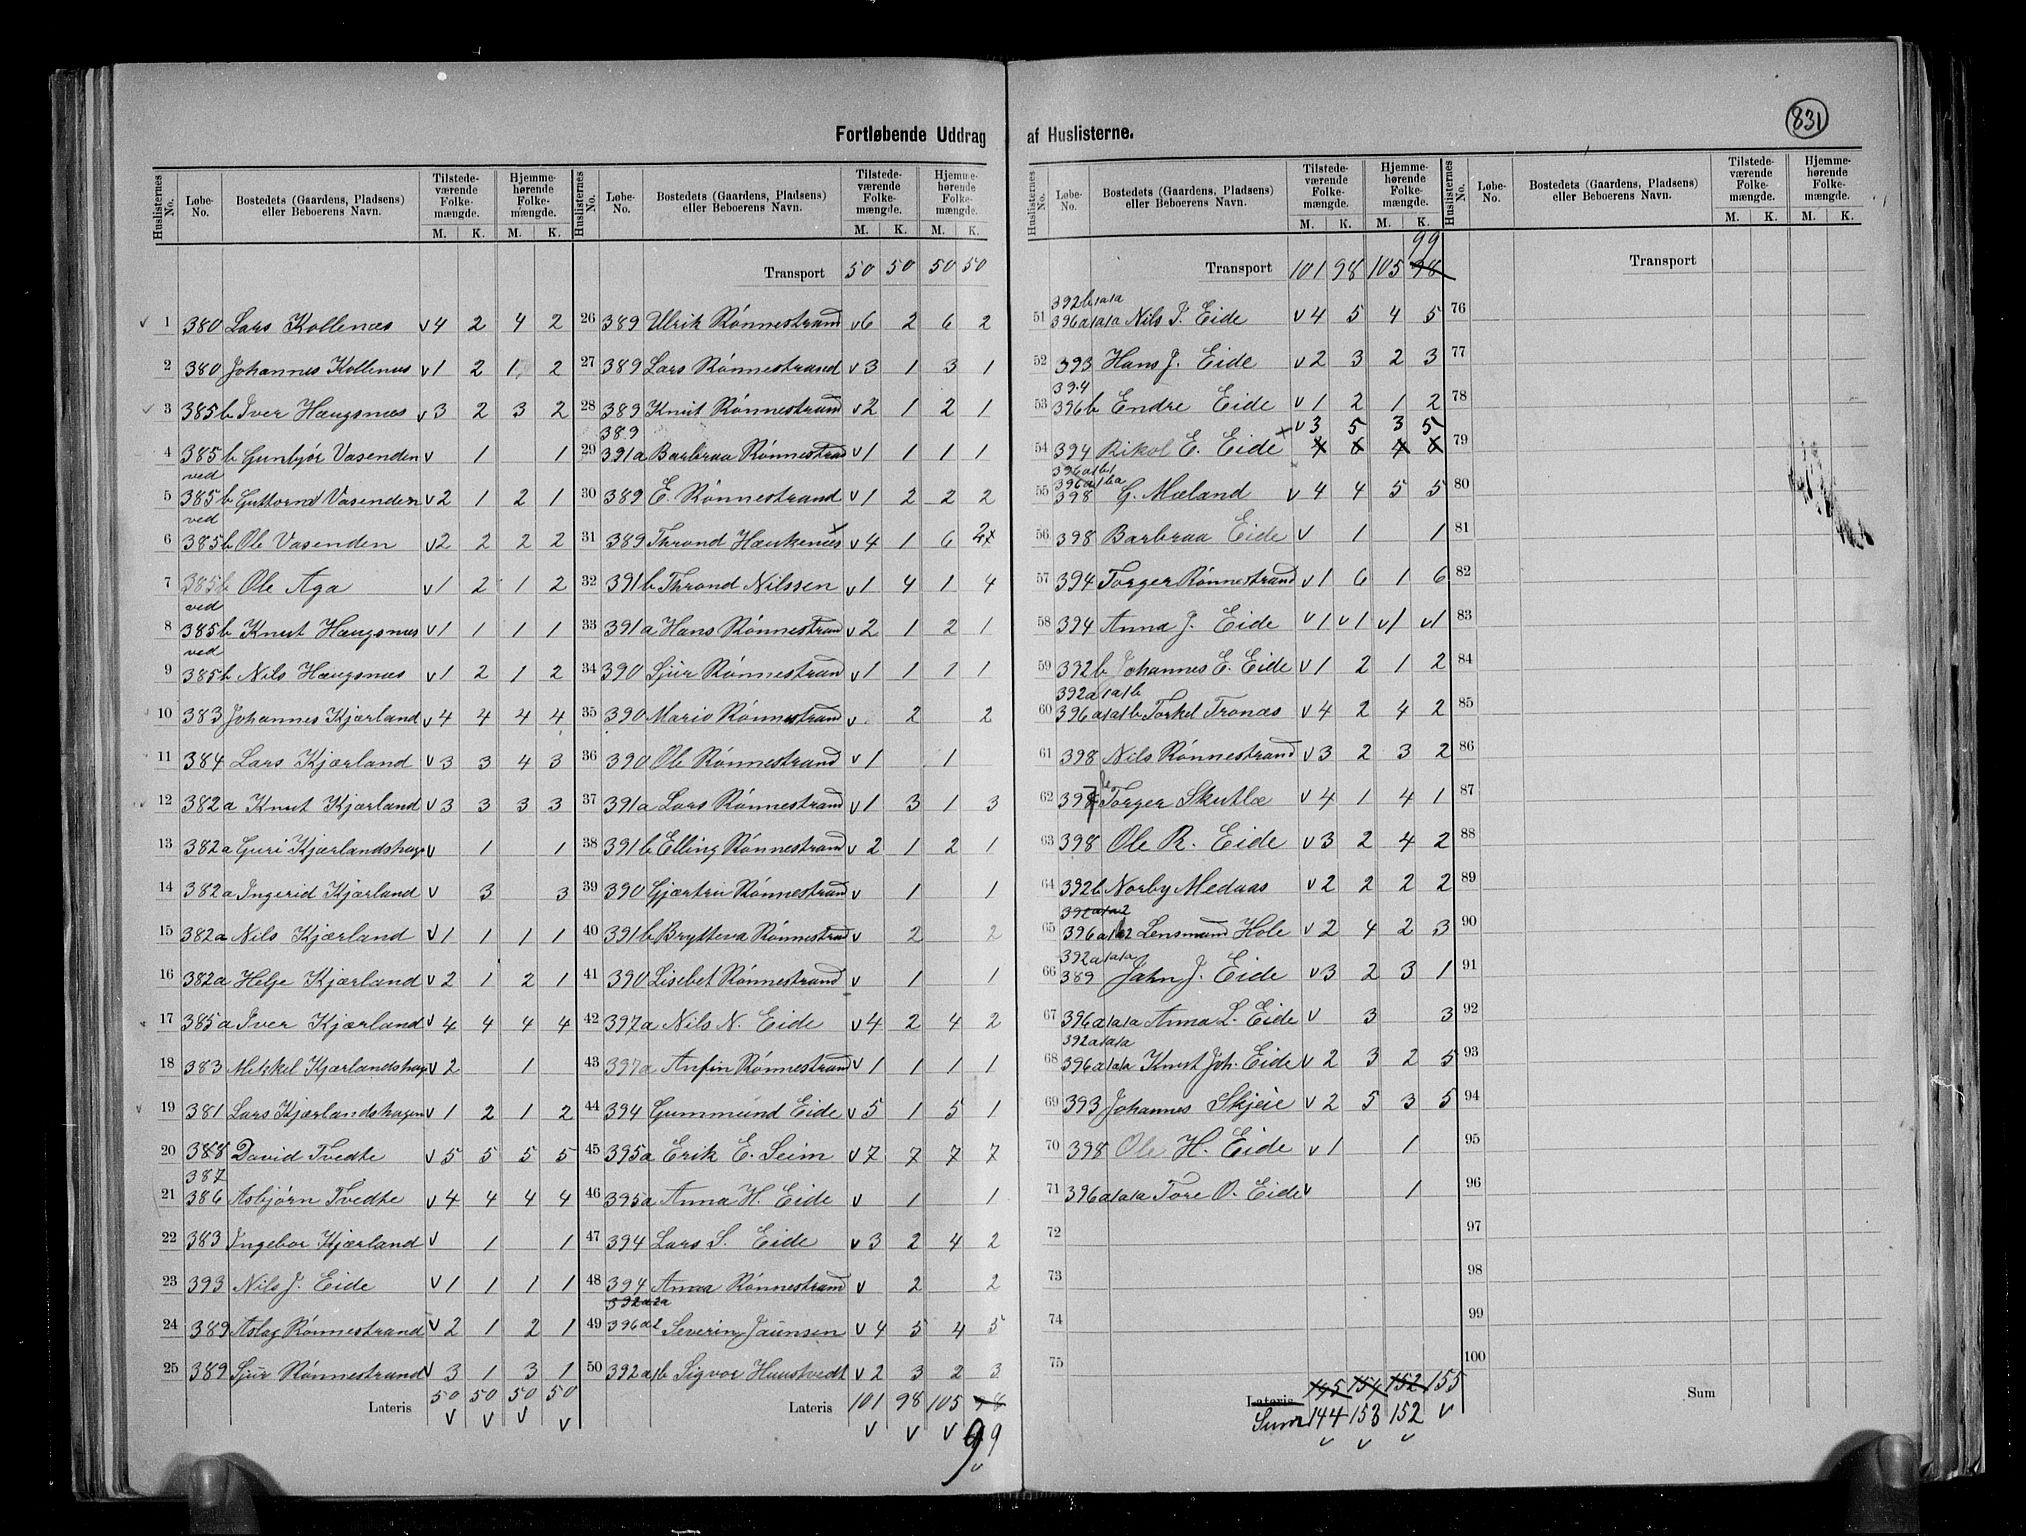 831
Fortløbende Uddrag af Huslisterne.
Huslisternes No. Løbe-No. Bostedets (Gaardens, Pladsens) eller Beboerens Navn. Tilstedeværende Folkemængde. Hjemmehørende Folkemængde.
M. K. M. K.
1 380 Lars Kollenæs v 4 2 4 2
2 380 Johannes Kollenæs v 1 2 1 2
3 385b Iver Haugsnæs v 3 2 3 2
4 385b Gunbjør Vasenden v 1 1
ved
5 385b Guttorm Vasenden v 2 1 2 1
ved
6 385b Ole Vasenden v 2 2 2 2
7 385b Ole Aga v 1 2 1 2
ved
8 385b Knut Haugsnæs v 1 1 1 1
ved
9 385b Nils Haugsnæs v 1 2 1 2
10 383 Johannes Kjærland v 4 4 4 4
11 384 Lars Kjærland v 3 3 4 3
12 382a Knut Kjærland v 3 3 3 3
13 382a Guri Kjærlandshagen v 1 1
14 382a Ingerid Kjærland v 3 3
15 382a Nils Kjærland v 1 1 1 1
16 382a Helje Kjærland v 2 1 2 1
17 385a Iver Kjærland v 4 4 4 4
18 383 Mikkel Kjærlandshagen v 2 1
19 381 Lars Kjærlandshagen v 1 2 1 2
20 388 David Tvedte v 5 5 5 5
387
21 386 Asbjørn Tvedte v 4 4 4 4
22 383 Ingebor Kjærland v 1 1
23 393 Nils J. Eide v 1 1 1 1
24 389 Aslag Rønnestrand v 2 1 2 1
25 389 Sjur Rønnestrand v 3 1 3 1
Lateris 50 50 50 50
v v v v
Huslisternes No. Løbe-No. Bostedets (Gaardens, Pladsens) eller Beboerens Navn. Tilstedeværende Folkemængde. Hjemmehørende Folkemængde.
M. K. M. K.
Transport 50 50 50 50
26 389 Ulrik Rønnestrand v 6 2 6 2
27 389 Lars Rønnestrand v 3 1 3 1
28 389 Knut Rønnestrand v 2 1 2 1
389
29 391a Barbraa Rønnestrand v 1 1 1 1
30 389 E. Rønnestrand v 1 2 2 2
31 389 Thrond Haukenæs x v 4 1 6 2x
32 391b Thrond Nilssen v 1 4 1 4
33 391a Hans Rønnestrand v 2 1 2 1
34 390 Sjur Rønnestrand v 1 1 1 1
35 390 Mario Rønnestrand v 2 2
36 390 Ole Rønnestrand v 1 1
37 391a Lars Rønnestrand v 1 3 1 3
38 391b Elling Rønnestrand v 2 1 2 1
39 390 Gjærtru Rønnestrand v 1 1
40 391b Brytteva Rønnestrand v 2 2
41 390 Lisebet Rønnestrand v 1 1
42 397a Nils N. Eide v 4 2 4 2
43 397a Anfin Rønnestrand v 1 1 1 1
44 394 Gummund Eide v 5 1 5 1
45 395a Erik E. Seim v 7 7 7 7
46 395a Anna H. Eide v 1 1
47 394 Lars S. Eide v 3 2 4 2
48 394 Anna Rønnestrand v 2 2
392a2a
49 396a2 Severin Jaunsen v 4 5 4 5
50 392a1b Sigvor Haustvedt v 2 3 2 3
Lateris 101 98 105 98
v v v 99
v
Huslisternes No. Løbe-No. Bostedets (Gaardens, Pladsens) eller Beboerens Navn. Tilstedeværende Folkemængde. Hjemmehørende Folkemængde.
M. K. M. K.
99
Transport 101 98 105 98
392b1a1a
51 396a1a1a Nils J. Eide v 4 5 4 5
52 393 Hans J. Eide v 2 3 2 3
394
53 396b Endre Eide v 1 2 1 2
v 3 5 3 5
54 394 Rikol E. Eide x 4 6 4 6
396a1b1
396a1ba
55 398 G. Mæland v 4 4 5 5
56 398 Barbraa Eide v 1 1
57 394 Torger Rønnestrand v 1 6 1 6
58 394 Anna J. Eide v1 v1 v1 v1
59 392b Johannes E. Eide v 1 2 1 2
392a1a1b
60 396a1a1b Torkel Tronæs v 4 2 4 2
61 398 Nils Rønnestrand v 3 2 3 2
62 397b Torger Skutlæ v 4 1 4 1
63 398 Ole R. Eide v 3 2 4 2
64 392b Norby Medaas v 2 2 2 2
392a1a2
65 396a1b2 Lensmand Hole v 2 4 2 3
392a1a1a
66 389 Jahn J. Eide v 3 2 3 1
67 396a1a1a Anna L. Eide v 3 3
392a1a1a
68 396a1a1a Knut Joh. Eide v 2 3 2 5
69 393 Johannes Skjeie v 2 5 3 5
70 398 Ole H. Eide v 1 1
71 396a1a1a Tore O. Eide v 1
72
73
74
75
Lateris 145 154 152 155
Sum 144 153 152 v
v v v
Huslisternes No. Løbe-No. Bostedets (Gaardens, Pladsens) eller Beboerens Navn. Tilstedeværende Folkemængde. Hjemmehørende Folkemængde.
M. K. M. K.
Transport
76
77
78
79
80
81
82
83
84
85
86
87
88
89
90
91
92
93
94
95
96
97
98
99
100
Sum